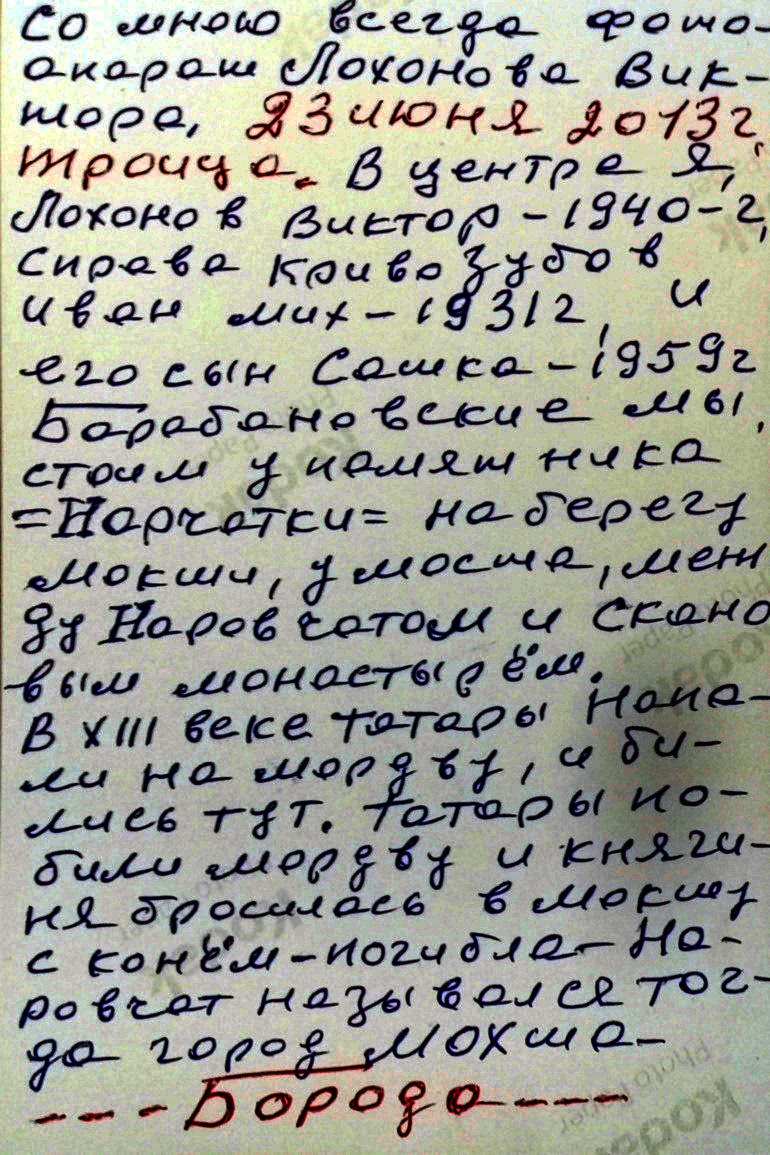 Со мною всегда фото-
апараш Лохонова Вик-
тора, 23 июня 2013г,
Троица. В центре я,
Лохонов Виктор-1940-г,
Справа Кривозубов
Иван мих-1931г, и
его сын Сашка-1959г
Барабановские мы,
стоим у памятника
=Нарчатки= на берегу
Мокши, у моста, меж
ду Наровчатом и Скано
вым монастырём.
В XIII веке татары напа-
ли на мордву, и би-
лись тут. Татары по-
били мордву и княги-
ня бросилась в Мокшу
с конём-погибла-На-
ровчат назывался тог-
да город Мохша-
----Борода----
Kodak
Photo Paper
Kodak
Photo Paper
Kodak
Photo Paper
Kodak
Photo Paper